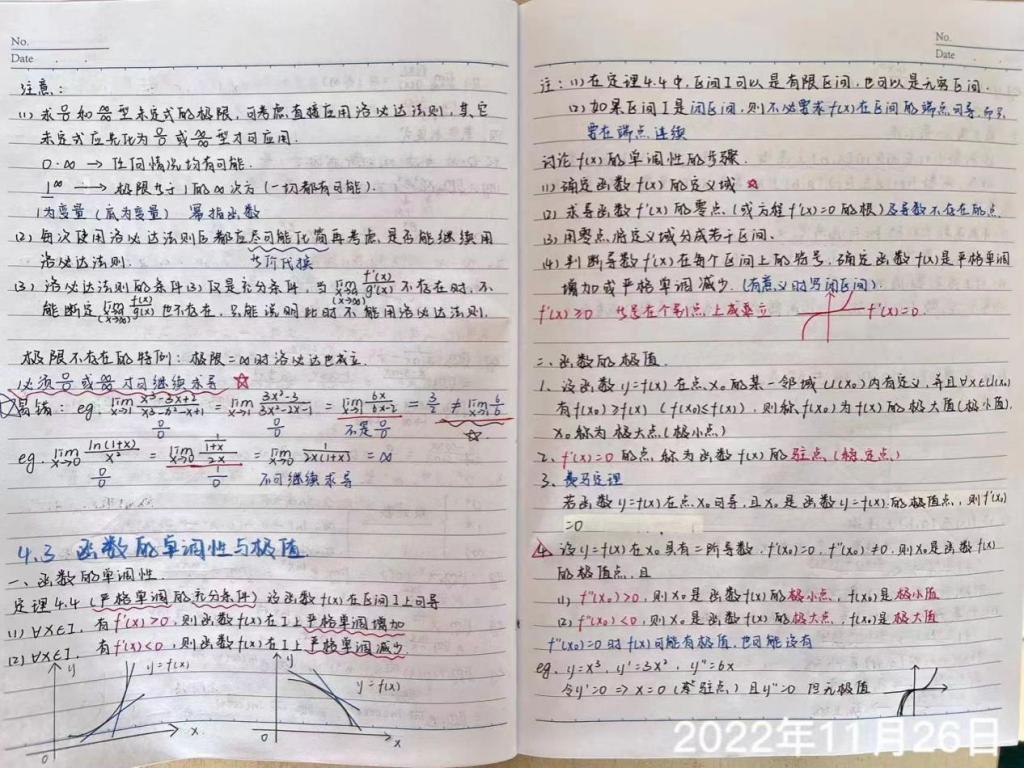 No.
Date
注意:
(1) 求0/0和∞/∞型未定式的极限,可考虑直接应用洛必达法则,其它
未定式应先化为0/0或∞/∞型才可应用.
0·∞ → 任何情况均有可能.
1^∞ → 极限等于1的∞次方(一切都有可能).
1为变量(底为变量) 幂指函数
(2) 每次使用洛必达法则后都应尽可能化简再考虑是否能继续用
洛必达法则. 等价代换
(3) 洛必达法则的条件(3)仅是充分条件,当lim(x→∞) f'(x)/g'(x)不存在时,不
能断定lim(x→∞) f(x)/g(x)也不存在,只能说明此时不能用洛必达法则.
极限不存在的特例:极限=∞时洛必达也成立.
必须0/0或∞/∞才可继续求导☆
易错: eg. lim x→1 (x³-3x+2)/(x³-x²-x+1) = lim x→1 (3x²-3)/(3x²-2x-1) = lim x→1 6x/(6x-2) = 3/2 ≠ lim x→1 6/6
0/0 0/0 不是0/0 ☆
eg. lim x→0 ln(1+x)/x² = lim x→0 (1/(1+x))/2x = lim x→0 1/(2x(1+x)) = ∞
0/0 1/0 不可继续求导
4.3 函数的单调性与极值
一、函数的单调性.
定理4.4 (严格单调的充分条件) 设函数f(x)在区间I上可导
(1) ∀x∈I, 有f'(x)>0,则函数f(x)在I上严格单调增加
(2) ∀x∈I, 有f'(x)<0,则函数f(x)在I上严格单调减少.
y y=f(x) x 0
y y=f(x) x 0
No.
Date
注:(1)在定理4.4中,区间I可以是有限区间,也可以是无穷区间.
(2)如果区间I是闭区间,则不必要求f(x)在区间的端点可导,而只
要在端点连续
讨论f(x)的单调性的步骤.
(1)确定函数f(x)的定义域☆
(2) 求导函数f'(x)的零点(或方程f'(x)=0的根)及导数不存在的点.
(3)用零点将定义域分成若干区间.
(4)判断导数f'(x)在每个区间上的符号,确定函数f(x)是严格单调
增加或严格单调减少.(有意义时写闭区间).
f'(x)≥0 等号在个别点上成立 f'(x)=0.
二、函数的极值.
1. 设函数y=f(x)在点x₀的某一邻域U(x₀)内有定义,并且∀x∈U(x₀)
有f(x₀)≥f(x) (f(x₀)≤f(x)),则称f(x₀)为f(x)的极大值(极小值).
x₀称为极大点(极小点)
2. f'(x)=0的点称为函数f(x)的驻点(稳定点)
3. 费马定理
若函数y=f(x)在点x₀可导,且x₀是函数y=f(x)的极值点,则f'(x₀)
=0
4. 设y=f(x)在x₀具有二阶导数,f'(x₀)=0,f''(x₀)≠0,则x₀是函数f(x)
的极值点,且
(1) f''(x₀)>0,则x₀是函数f(x)的极小点,f(x₀)是极小值
(2) f''(x₀)<0,则x₀是函数f(x)的极大点,f(x₀)是极大值
f''(x₀)=0时f(x)可能有极值,也可能没有
eg. y=x³, y'=3x², y''=6x
令y'=0 => x=0 (驻点) 且y''=0 但无极值
2022年11月26日